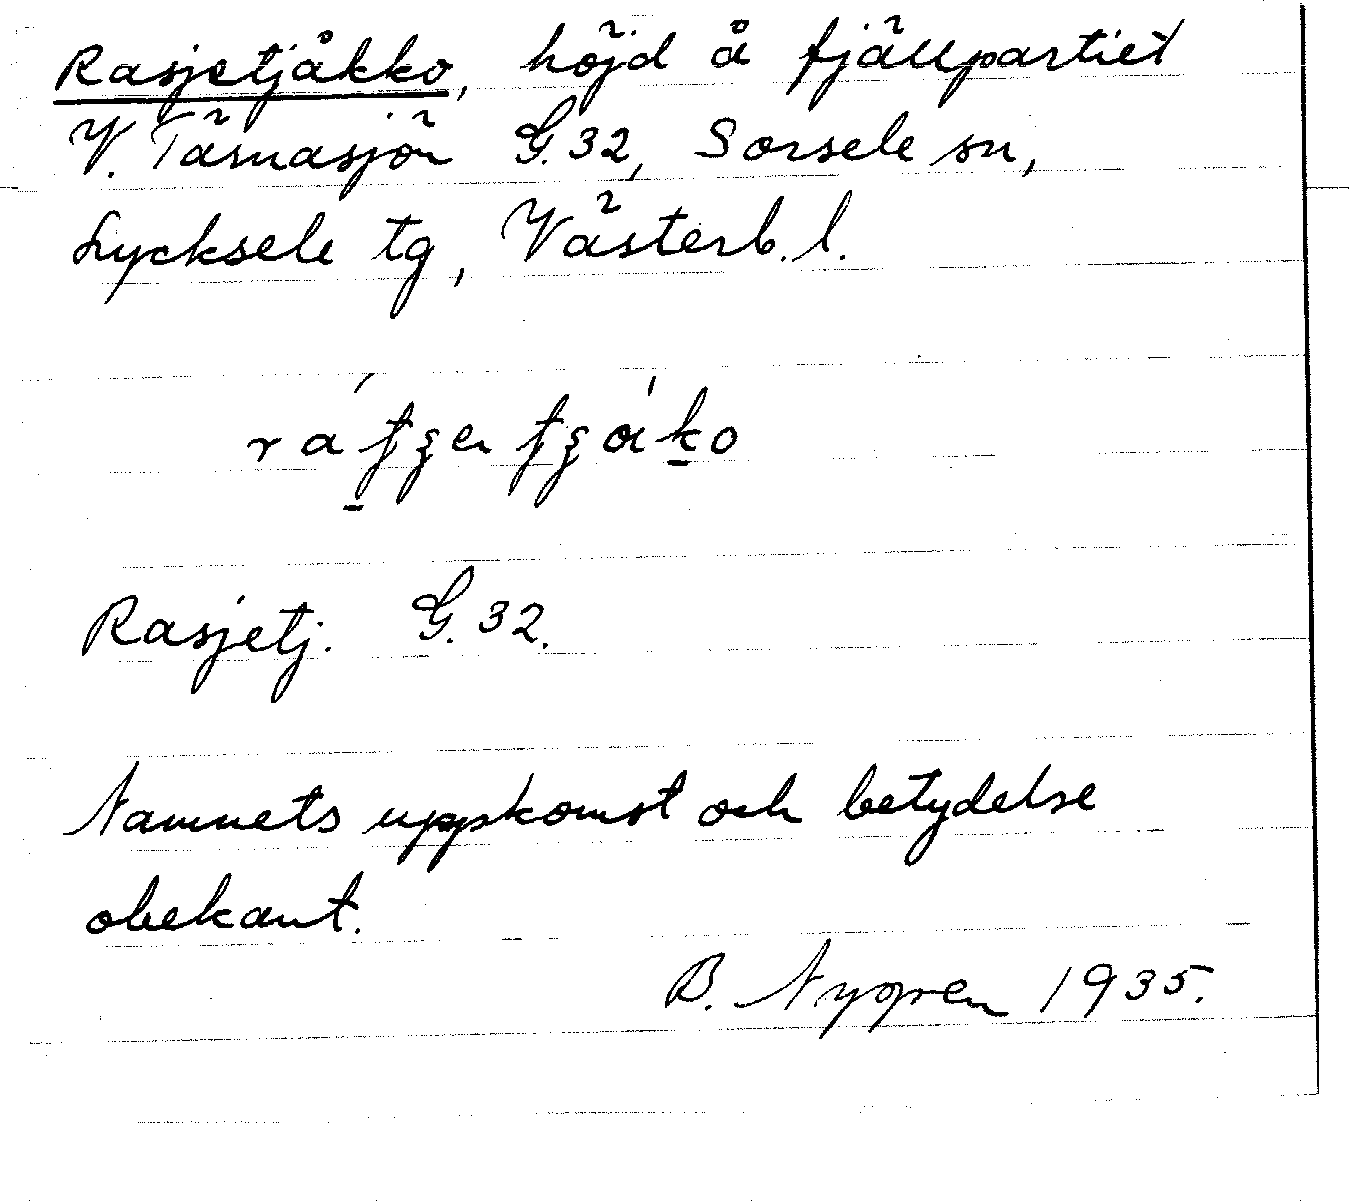 Rasjetjåkko, höjd å fjällpartiet
V. Tärnasjön G. 32, Sorsele sn,
Lycksele tg, Västerb. l.
Rasjetj. G. 32.
Namnets uppkomst och betydelse
obekant.
B. Nygren 1935.